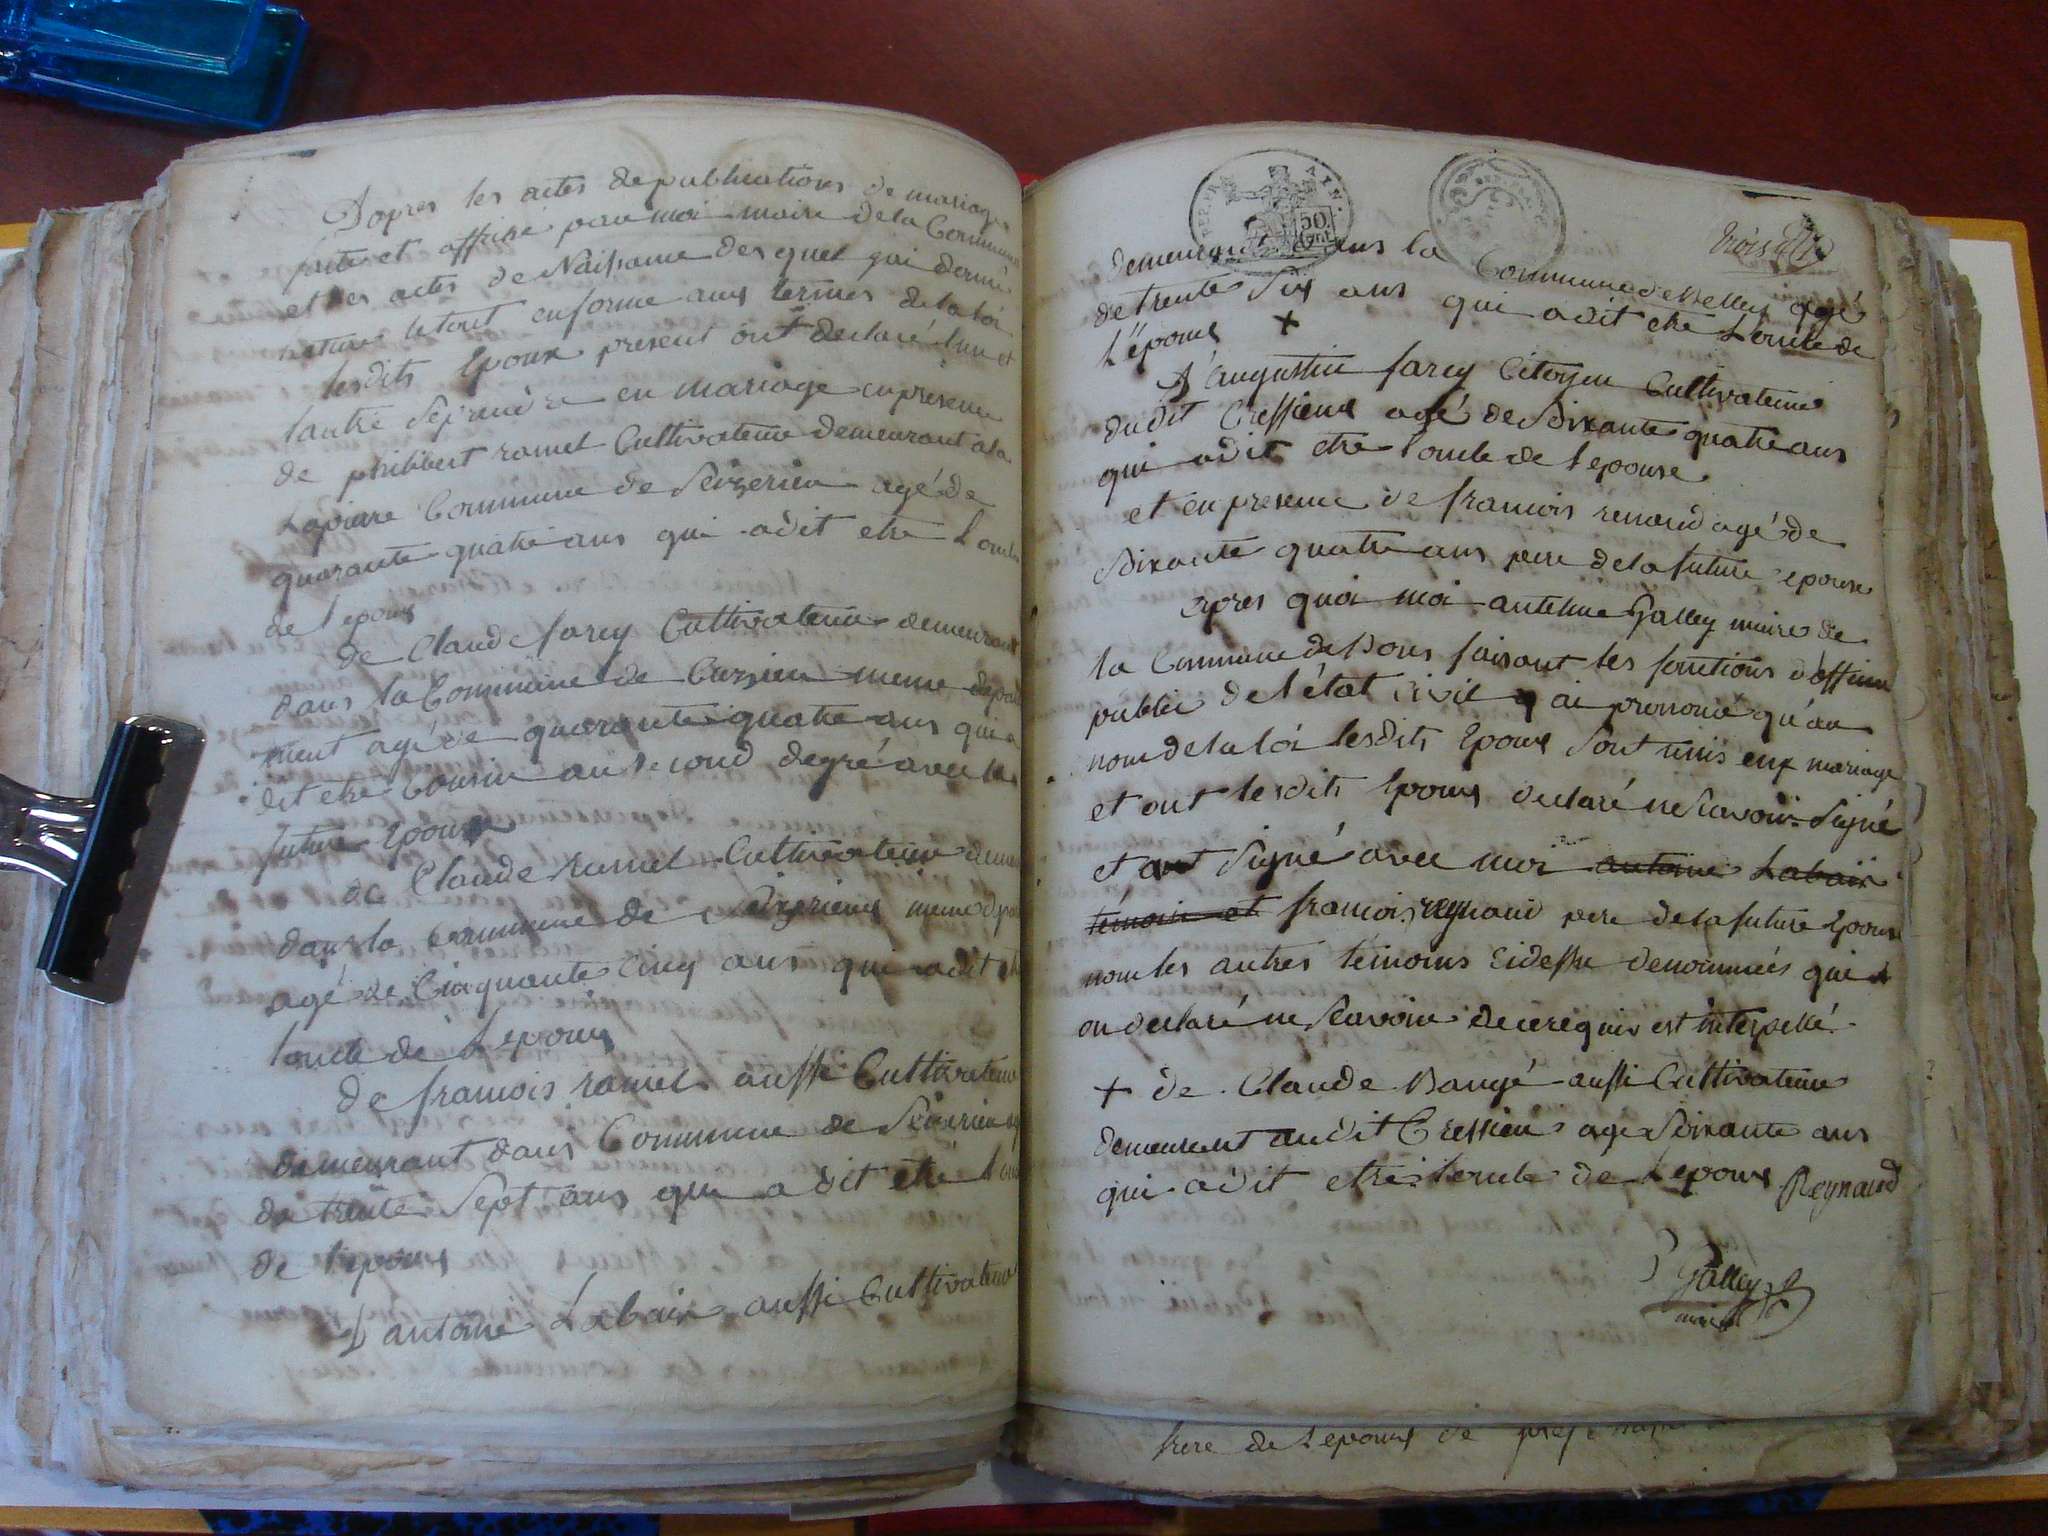 D'apres les actes de publications de mariage
faite et affiché par moi maire de la Commune
et les actes de Naissance des quel qui derm
nature le tout en forme aux termes de la loi
lesdits Epoux present ont declaré l'un et
lautre se prendre en mariage en présence
de philibert ramel Cultivateur demeurant a la
Lapierre Commune de Seizerieu agé de
quarante quatre ans qui a dit etre L'oncle
de l'epoux
de Claude farcy Cultivateur demeurant
dans la Commune de Cuzieu meme depar
ment agé de quarante quatre ans qui a
dit etre Cousin au second degré avec la
future Epouse
de Claude ramel Cultivateur demeu
dans la commune de Seizerieu meme depa
agé de Cinquante Cinq ans qui a dit et
loncle de Lepoux
de francois ramel aussi Cultivateur
demeurant dans Commune de Seizerieu ag
de trente Sept ans qui a dit etre L'on
de l'epoux
D'antoine Labaix aussi Cultivateur
50
trois
demeurant dans la Commune de Belley agé
de trente six ans qui a dit etre L'oncle de
L'époux +
D'augustin farcy Citoyen Cultivateur
du dit Cressieux agé de Soixante quatre ans
qui a dit etre l'oncle de l'epouse
et en presence de francois renaud agé de
Soixante quatre ans pere de la future epouse
apres quoi moi anthelme Galley maire de
la Commune de Bons faisant les fonctions d'officier
public de l'état civil j'ai prononcé qu'au
nom de la loi lesdits Epoux sont unis en mariage
et ont lesdits Epoux declaré ne Savoir Signé
et ont Signé avec moi antoine Labaix
témoin et francois reynaud pere de la future Epouse
non les autres témoins Cidessu denommés qui
on declaré ne Scavoir de ce requis est interpellé.
+ de Claude Baugé aussi Cultivateur
demeurent audit Cressieu agé Soixante ans
qui a dit etre l'oncle de Lepoux Reynaud
Galley
maire
frere de Lepoux de